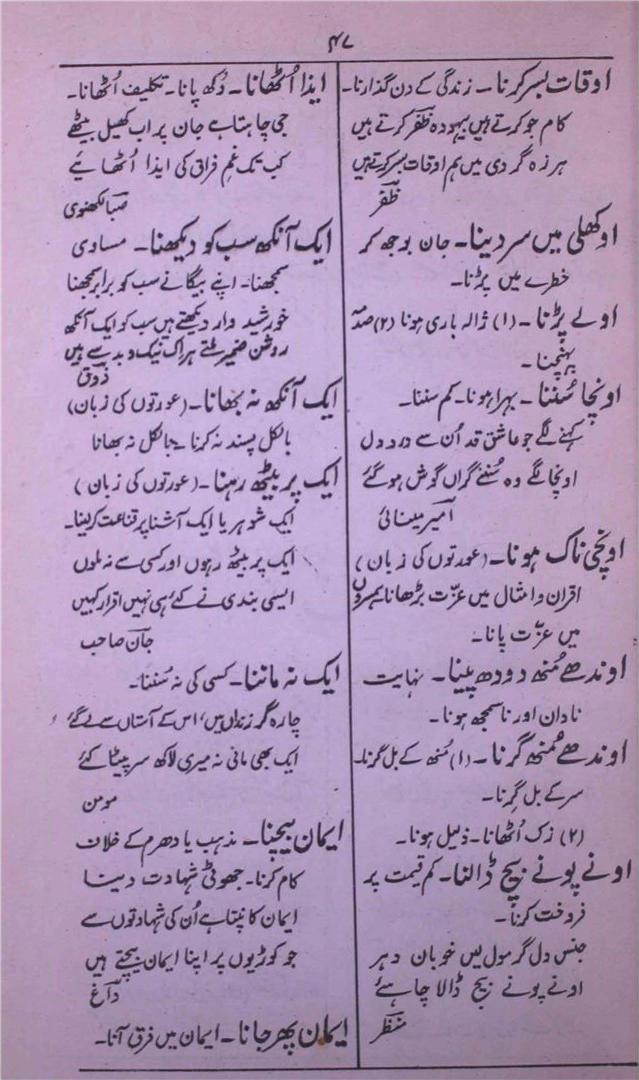 ۴۷
اوقات بسر کرنا۔ زندگی کے دن گذارنا۔
کام جو کرتے ہیں بیہودہ ظفر کرتے ہیں
ہرزہ گردی میں ہم اوقات بسر کرتے ہیں
ظفر
اوکھلی میں سر دینا۔ جان بوجھ کر
خطرے میں پڑنا۔
اولے پڑنا۔ (۱) ژالہ باری ہونا (۲) صدمہ
پہنچنا۔
اونچا سُننا۔ بہرا ہونا۔ کم سننا۔
کہنے لگے جو عاشق قد اُن سے درد دل
اونچا لگے وہ سُننے گراں گوش ہو گئے
امیر مینائی
اونچی ناک ہونا۔ (عورتوں کی زبان)
اقران و امثال میں عزت بڑھانا ہمسروں
میں عزت پانا۔
اوندھے مُنھ دودھ پینا۔ نہایت
نادان اور ناسمجھ ہونا۔
اوندھے مُنھ گرنا۔ (۱) مُنھ کے بل گرنا۔
سر کے بل گرنا۔
(۲) زک اُٹھانا۔ ذلیل ہونا۔
اونے پونے بیچ ڈالنا۔ کم قیمت پر
فروخت کرنا۔
جنس دل گر مول لیں خوبان دہر
اونے پونے بیچ ڈالا چاہئے
منتظر
ایذا اُٹھانا۔ دُکھ پانا۔ تکلیف اُٹھانا۔
جی چاہتا ہے جان پر اب کھیل بیٹھے
کب تک غمِ فراق کی ایذا اُٹھائیے
صبا لکھنوی
ایک آنکھ سب کو دیکھنا۔ مساوی
سمجھنا۔ اپنے بیگانے سب کو برابر سمجھنا
خورشید وار دیکھتے ہیں سب کو ایک آنکھ
روشن ضمیر ملتے ہر اک نیک و بد سے ہیں
ذوق
ایک آنکھ نہ بھانا۔ (عورتوں کی زبان)
بالکل پسند نہ کرنا۔ بالکل نہ بھانا
ایک پر بیٹھ رہنا۔ (عورتوں کی زبان)
ایک شوہر یا ایک آشنا پر قناعت کرلینا۔
ایک پر بیٹھ رہوں اور کسی سے نہ ملوں
ایسی بندی نے کئے ہی نہیں اقرار کہیں
جان صاحب
ایک نہ ماننا۔ کسی کی نہ سُننا۔
چارہ گر زنداں میں اس کے آستاں سے لے گئے
ایک بھی مانی نہ میری لاکھ سر پیٹا کئے
مومن
ایمان بیچنا۔ مذہب یا دھرم کے خلاف
کام کرنا۔ جھوٹی شہادت دینا
ایمان کانپتا ہے اُن کی شہادتوں سے
جو کوڑیوں پر اپنا ایمان بیچتے ہیں
داغ
ایمان پھر جانا۔ ایمان میں فرق آنا۔